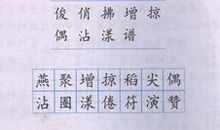 俊俏拂增掠
偶沾漾谱
燕聚增掠稻尖偶
沾圈漾倦符演赞